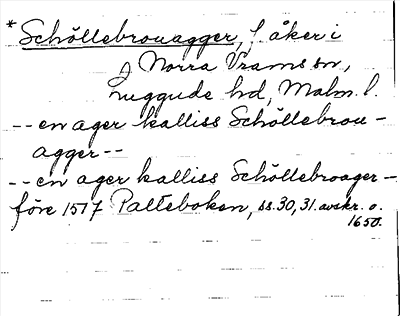 * Schöllebrouagger, f. åker i
J Norra Vrams sn,
Luggude hd, Malm. l.
-- en ager kalliss Schöllebrou-
agger --
-- en ager kalliss Schöllebroager -
före 1517 Palteboken, ss. 30, 31. avskr. o.
1650.